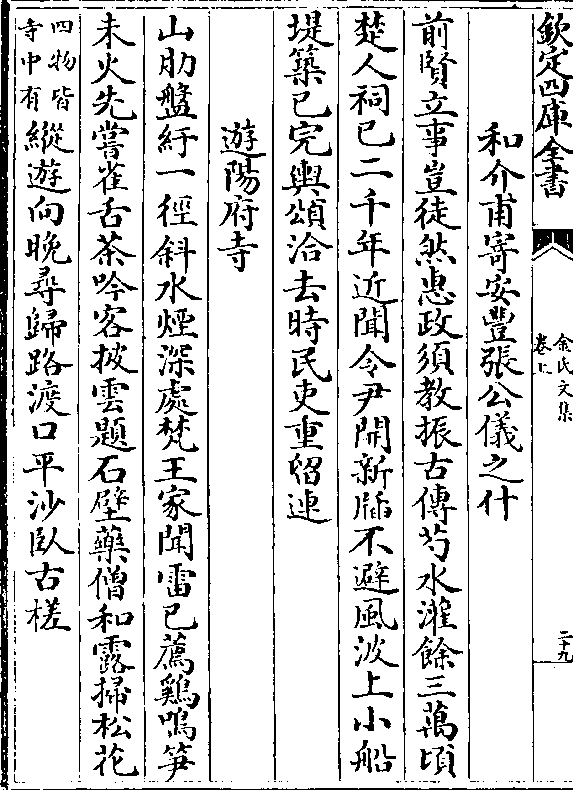 欽定四庫全書
金氏文集
卷上
二十九
和介甫寄安豐張公儀之什
前賢立事豈徒然惠政須教振古傳芍水灌餘三萬頃
楚人祠已二千年近聞令尹開新牐不避風波上小船
堤築已完輿頌洽去時民吏重留連
遊陽府寺
山肋盤紆一徑斜水煙深處梵王家聞雷已薦鷄鳴笋
未火先嘗雀舌茶吟客披雲題石壁藥僧和露掃松花
四物皆
寺中有
縱遊向晚尋歸路渡口平沙臥古槎